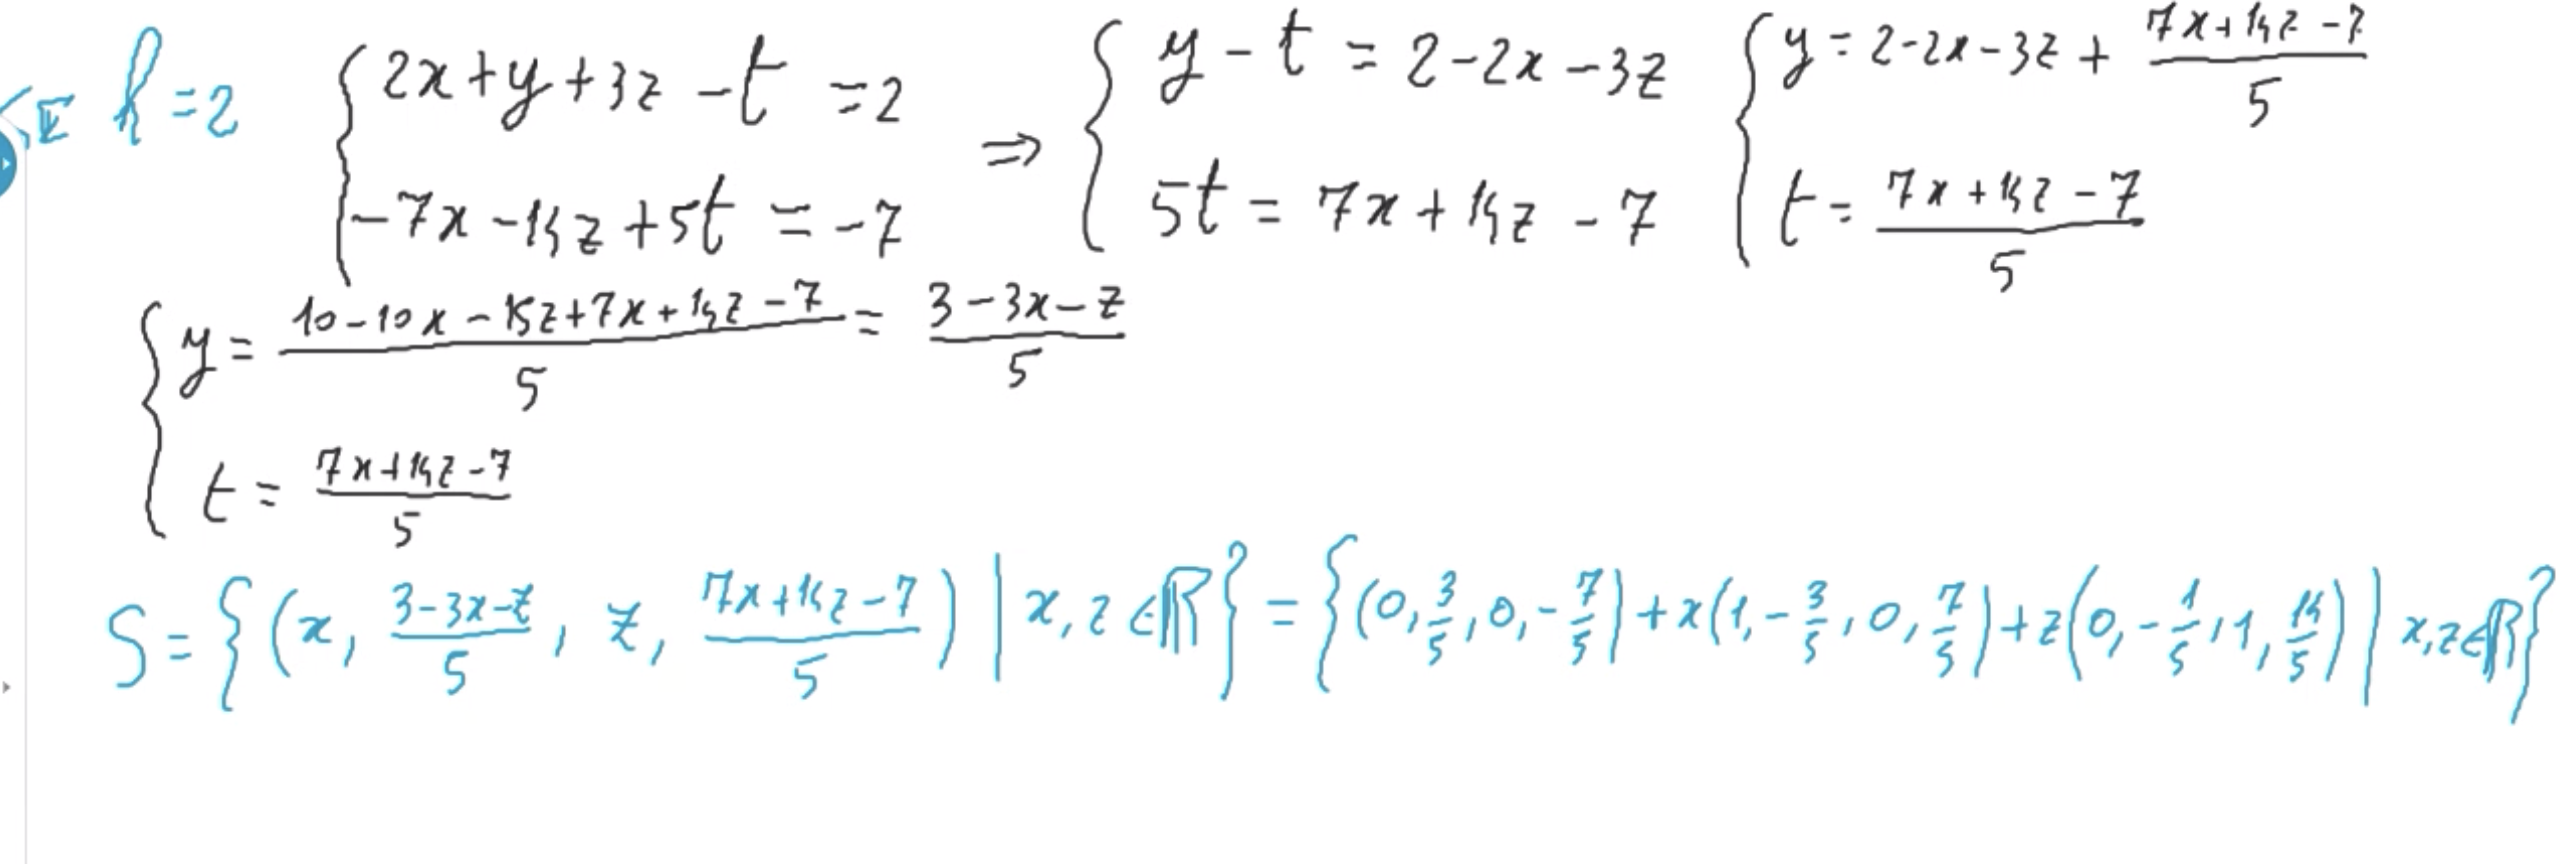 SE k=2 { 2x+y+3z -t =2 ⇒ { y - t = 2-2x-3z { y = 2-2x-3z + (7x+14z-7)/5
-7x-14z+5t = -7 5t = 7x+14z-7 t = (7x+14z-7)/5
{ y = (10-10x-15z+7x+14z-7)/5 = (3-3x-z)/5
t = (7x+14z-7)/5
S = {(x, (3-3x-z)/5, z, (7x+14z-7)/5) | x, z ∈ ℝ} = {(0, 3/5, 0, -7/5) + x(1, -3/5, 0, 7/5) + z(0, -1/5, 1, 14/5) | x, z ∈ ℝ}